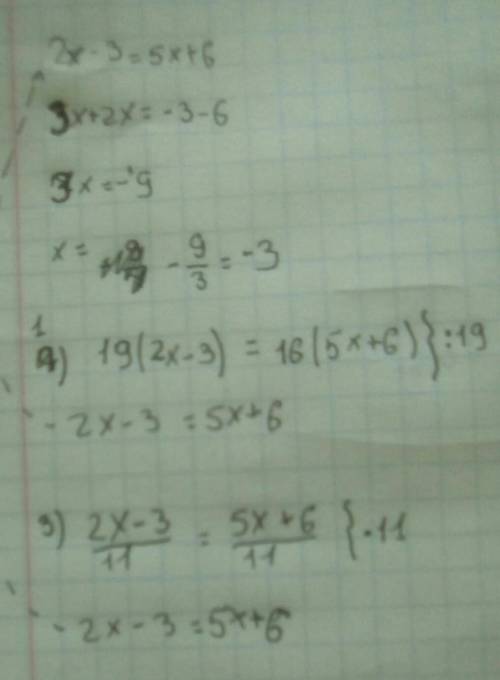 2x - 3 = 5x + 6
3x + 2x = -3 - 6
3x = -9
x = - 9/3 = -3
1) 19(2x - 3) = 16(5x + 6) } :19
- 2x - 3 = 5x + 6
3) (2x - 3)/11 = (5x + 6)/11 } · 11
- 2x - 3 = 5x + 6